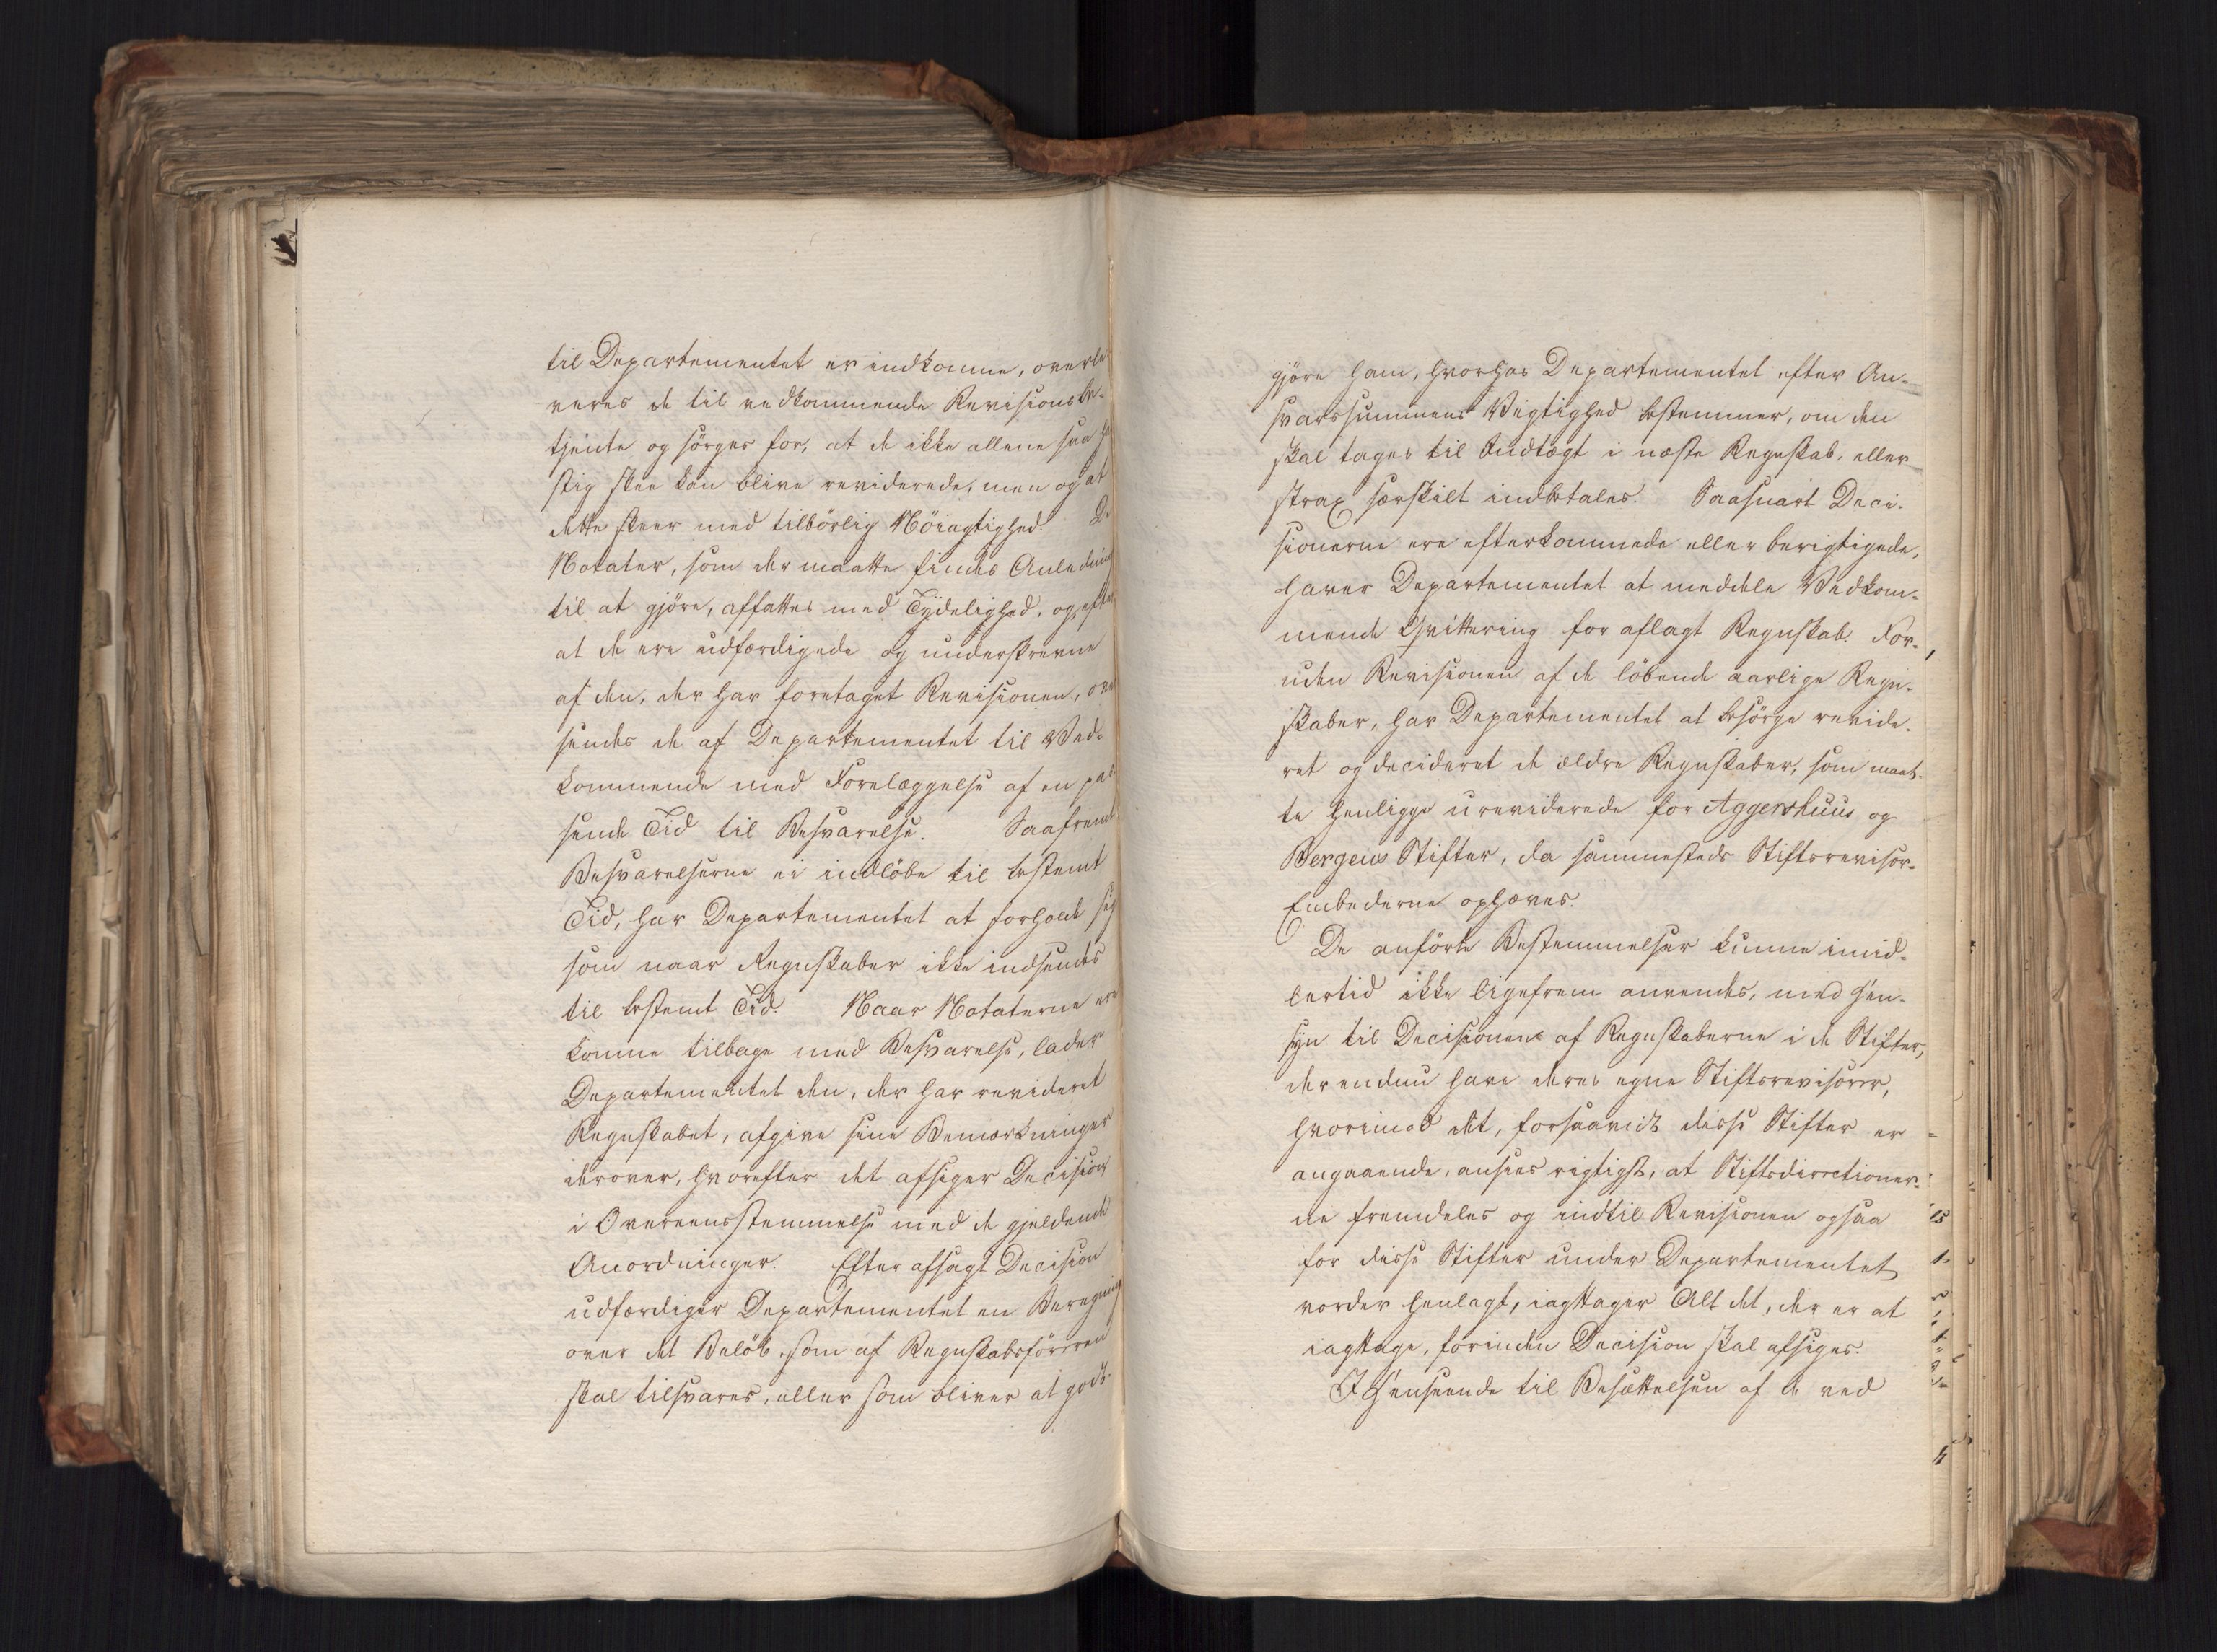 til Departementet er indkomne, overle
veres de til vedkommende Revisionsbe-
tjente og sörges for, at de ikke allene saa
stig skee kan blive reviderede, men og at
dette skeer med tilbörlig Nöiagtighed. De
Notater, som der maatte findes Anledning
til at gjöre, affattes med Tydelighed, og efter
at de ere udfærdigede og underskrevne
af den, der har foretaget Revisionen, over
sendes de af Departementet til Ved-
kommende med Forelæggelse af en pas
sende Tid til Besvarelse. Saafremt
Besvarelserne ei indlöbe til bestemt
Tid, har Departementet at forholde sig
som naar Regnskaber ikke indsendes
til bestemt Tid. Naar Notaterne ere
komne tilbage med Besvarelse, lader
Departementet den, der har revideret
Regnskabet, afgive sine Bemærkninger
derover, hvorefter det afsiger Decision
i Overeensstemmelse med de gjeldende
Anordninger. Efter afsagt Decision
udfærdiger Departementet en Beregning
over det Belöb, som af Regnskabsföreren
skal tilsvares, eller som bliver at godt-
gjöre ham, hvorhos Departementet efter An-
svarssummens Vigtighed bestemmer, om den
skal tages til Indtægt i næste Regnskab, eller
strax særskilt indbetales. Saasnart Deci-
sionerne ere efterkommede eller berigtigede,
haver Departementet at meddele Vedkom-
mende Qvittering for aflagt Regnskab. For-
uden Revisionen af de löbende aarlige Regn-
skaber, har Departementet at besörge revide-
ret og decideret de ældre Regnskaber, som maat-
te henligge ureviderede for Aggershuus og
Bergens Stifter, da sammesteds Stiftsrevisor-
Embederne ophæves.
De anförte Bestemmelser kunne imid-
lertid ikke ligefrem anvendes, med Hen-
syn til Decisionen af Regnskaberne i de Stifter,
der endnu have deres egne Stiftsrevisorer,
hvorimod det, forsaavidt disse Stifter er
angaaende, ansees rigtigst, at Stiftsdirectioner-
ne fremdeles og indtil Revisionen ogsaa
for disse Stifter under Departementet
vorder henlagt, iagttager Alt det, der er at
iagttage, forinden Decision skal afsiges.
I Henseende til Besættelsen af de ved